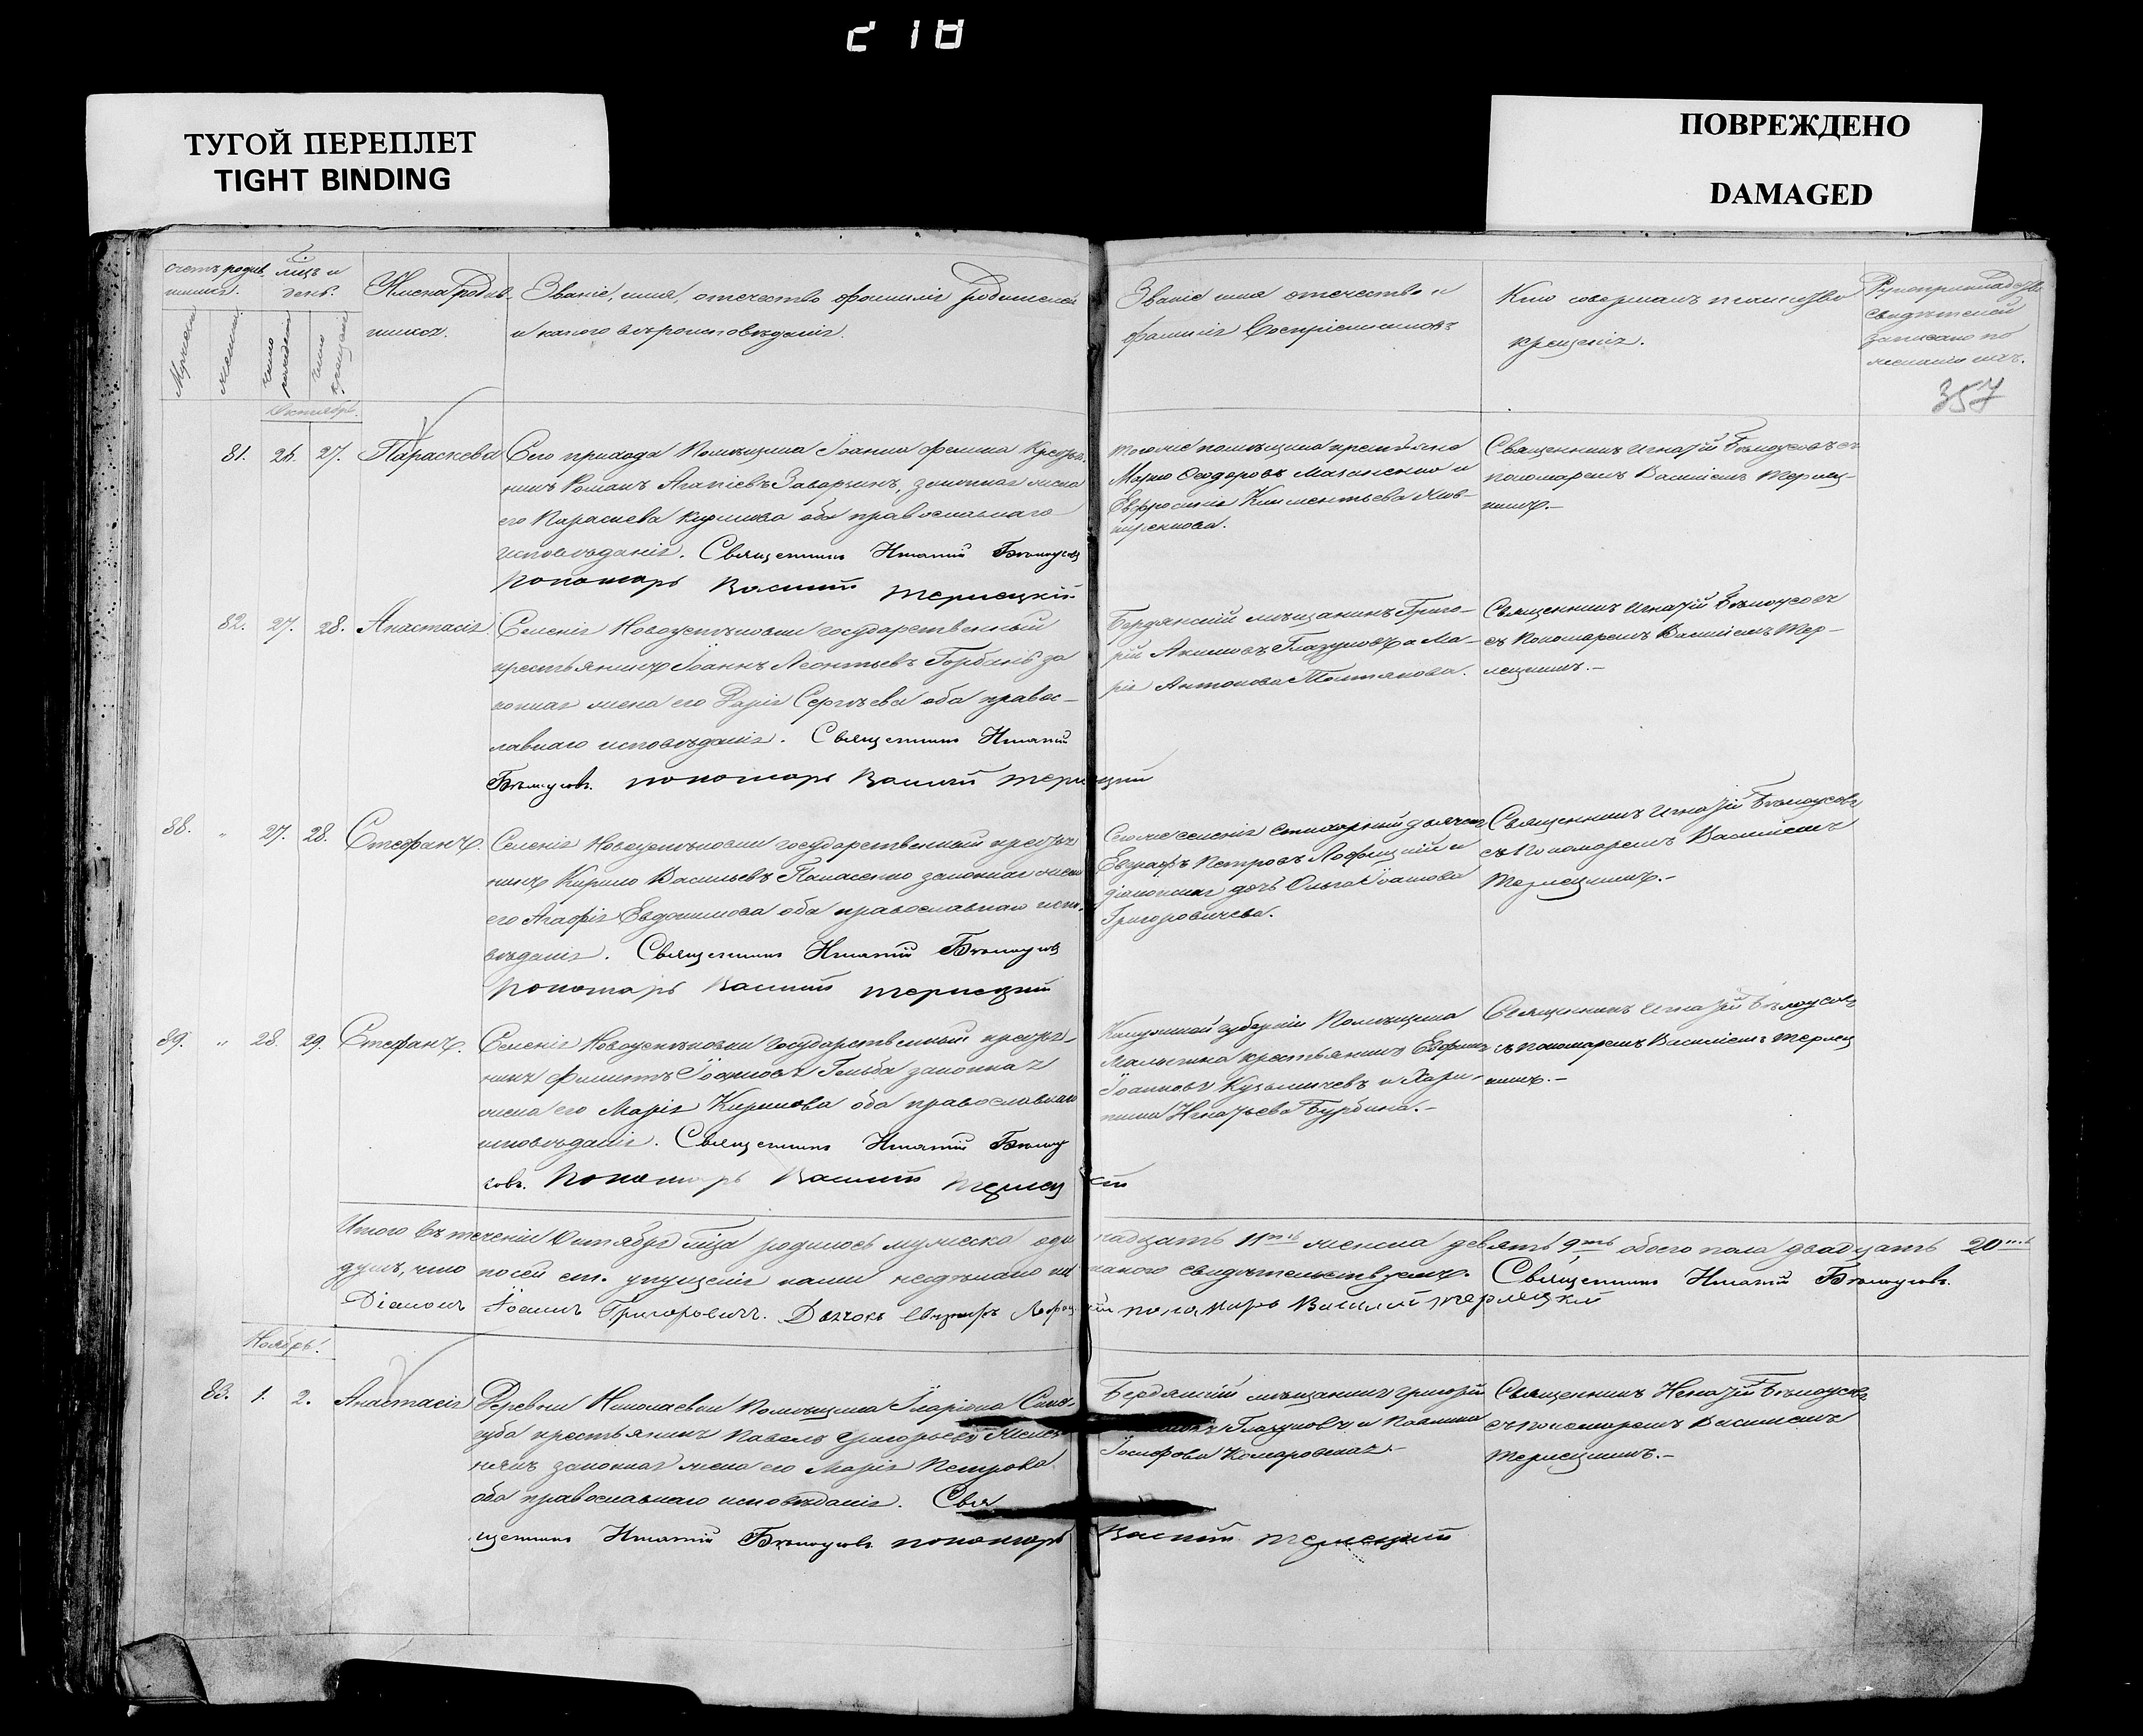 218
ТУГОЙ ПЕРЕПЛЕТ
TIGHT BINDING
ПОВРЕЖДЕНО
DAMAGED
Счетъ родив
шихся.
мцъ и
день.
Мужеска
женска
число рожденія
число крещенія
Имена родив
шихся.
Званіе, имя, отчество фамилія родителей
и какого вѣроисповѣданія.
Званіе имя отчество и
фамилія Воспріемниковъ
Кто совершалъ таинство
крещенія.
Рукоприкладство
свидѣтелей
записано по
желанію ихъ.
357
Октябрь.
81. 26. 27. Параскева
Сего прихода Помѣщика Іоанна Фомина Крестья
нинъ Романъ Агапіевъ законная жена
его Параскева Кирилова оба православнаго
исповѣданія. Священникъ Игнатій Бѣлоусовъ
пономарь Василій Терлецкій
тогоже помѣщика крестьяне
Марко Ѳеодоровъ и
Евфросинія Климентьева
Священникъ Игнатій Бѣлоусовъ съ
пономаремъ Василіемъ Терлец-
кимъ.-
82. 27. 28. Анастасія
Селенія Новоуспеновки государственный
крестьянинъ Іоаннъ Леонтьевъ Горбань за
конная жена его Дарія Сергѣева оба правос-
лавнаго исповѣданія. Священникъ Игнатій
Бѣлоусовъ. пономарь Василій Терлецкій
Бердянскій мѣщанинъ Григо-
рій Акимовъ Глазуновъ и Ма-
рія Антонова
Священникъ Игнатій Бѣлоусовъ
съ Пономаремъ Василіемъ Тер-
лецкимъ.-
88. " 27. 28. Стефанъ.
Селенія Новоуспеновки государственный крестья
нинъ Кирило Васильевъ Панасенко законная жена
его Агафія Евдокимова оба православнаго испо-
вѣданія. Священникъ Игнатій Бѣлоусовъ
Пономарь Василій Терлецкій
Сегоже селенія стихарный дьячекъ
Евграфъ Петровъ Лофицкій и
діаконская дочь Ольга Іоаннова
Григоровичева.
Священникъ Игнатій Бѣлоусовъ
съ Пономаремъ Василіемъ
Терлецкимъ.-
89. " 28. 29. Стефанъ.
Селенія Новоуспеновки государственный крестья-
нинъ Филиппъ Гольба законная
жена его Марія Кирилова оба православнаго
исповѣданія. Священникъ Игнатій Бѣлоу
совъ. Пономарь Василій Терлецкій
Калужской губерніи Помѣщика
крестьянинъ
Іоанновъ Кузьмичевъ и Хари-
тина Игнатьева Бурбина.-
Священникъ Игнатій Бѣлоусовъ
съ пономаремъ Василіемъ Терлец
кимъ.-
Итого въ теченіи Октября мца родилось мужеска одинадцать 11ть женска девять 9ть обоего пола двадцать 20ть
душъ, что по сей ст. упущенія нами недѣлано никакого свидѣтельствуемъ. Священникъ Игнатій Бѣлоусовъ.
Діаконъ Іоаннъ Григоровичъ. Дьячокъ Евграфъ Лофицкій пономарь Василій Терлецкій
Ноябрь.
83. 1. 2. Анастасія
Деревни Николаевки Помѣщика Иларіона Сине-
губа крестьянинъ Павелъ Григорьевъ
законная жена его Марія Петрова
оба православнаго исповѣданія. Свя
щенникъ Игнатій Бѣлоусовъ пономарь Василій Терлецкій
Бердянскій мѣщанинъ Григорій
Глазуновъ и
Іосифова Комаровская.-
Священникъ Игнатій Бѣлоусовъ
съ пономаремъ Василіемъ
Терлецкимъ.-